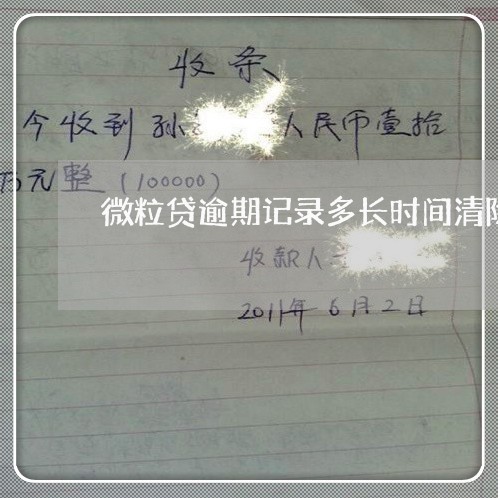 收条
今收到孙 人民币壹拾
万元整（100000）
微粒贷逾期记录多长时间清除
收款人
2011年6月2日